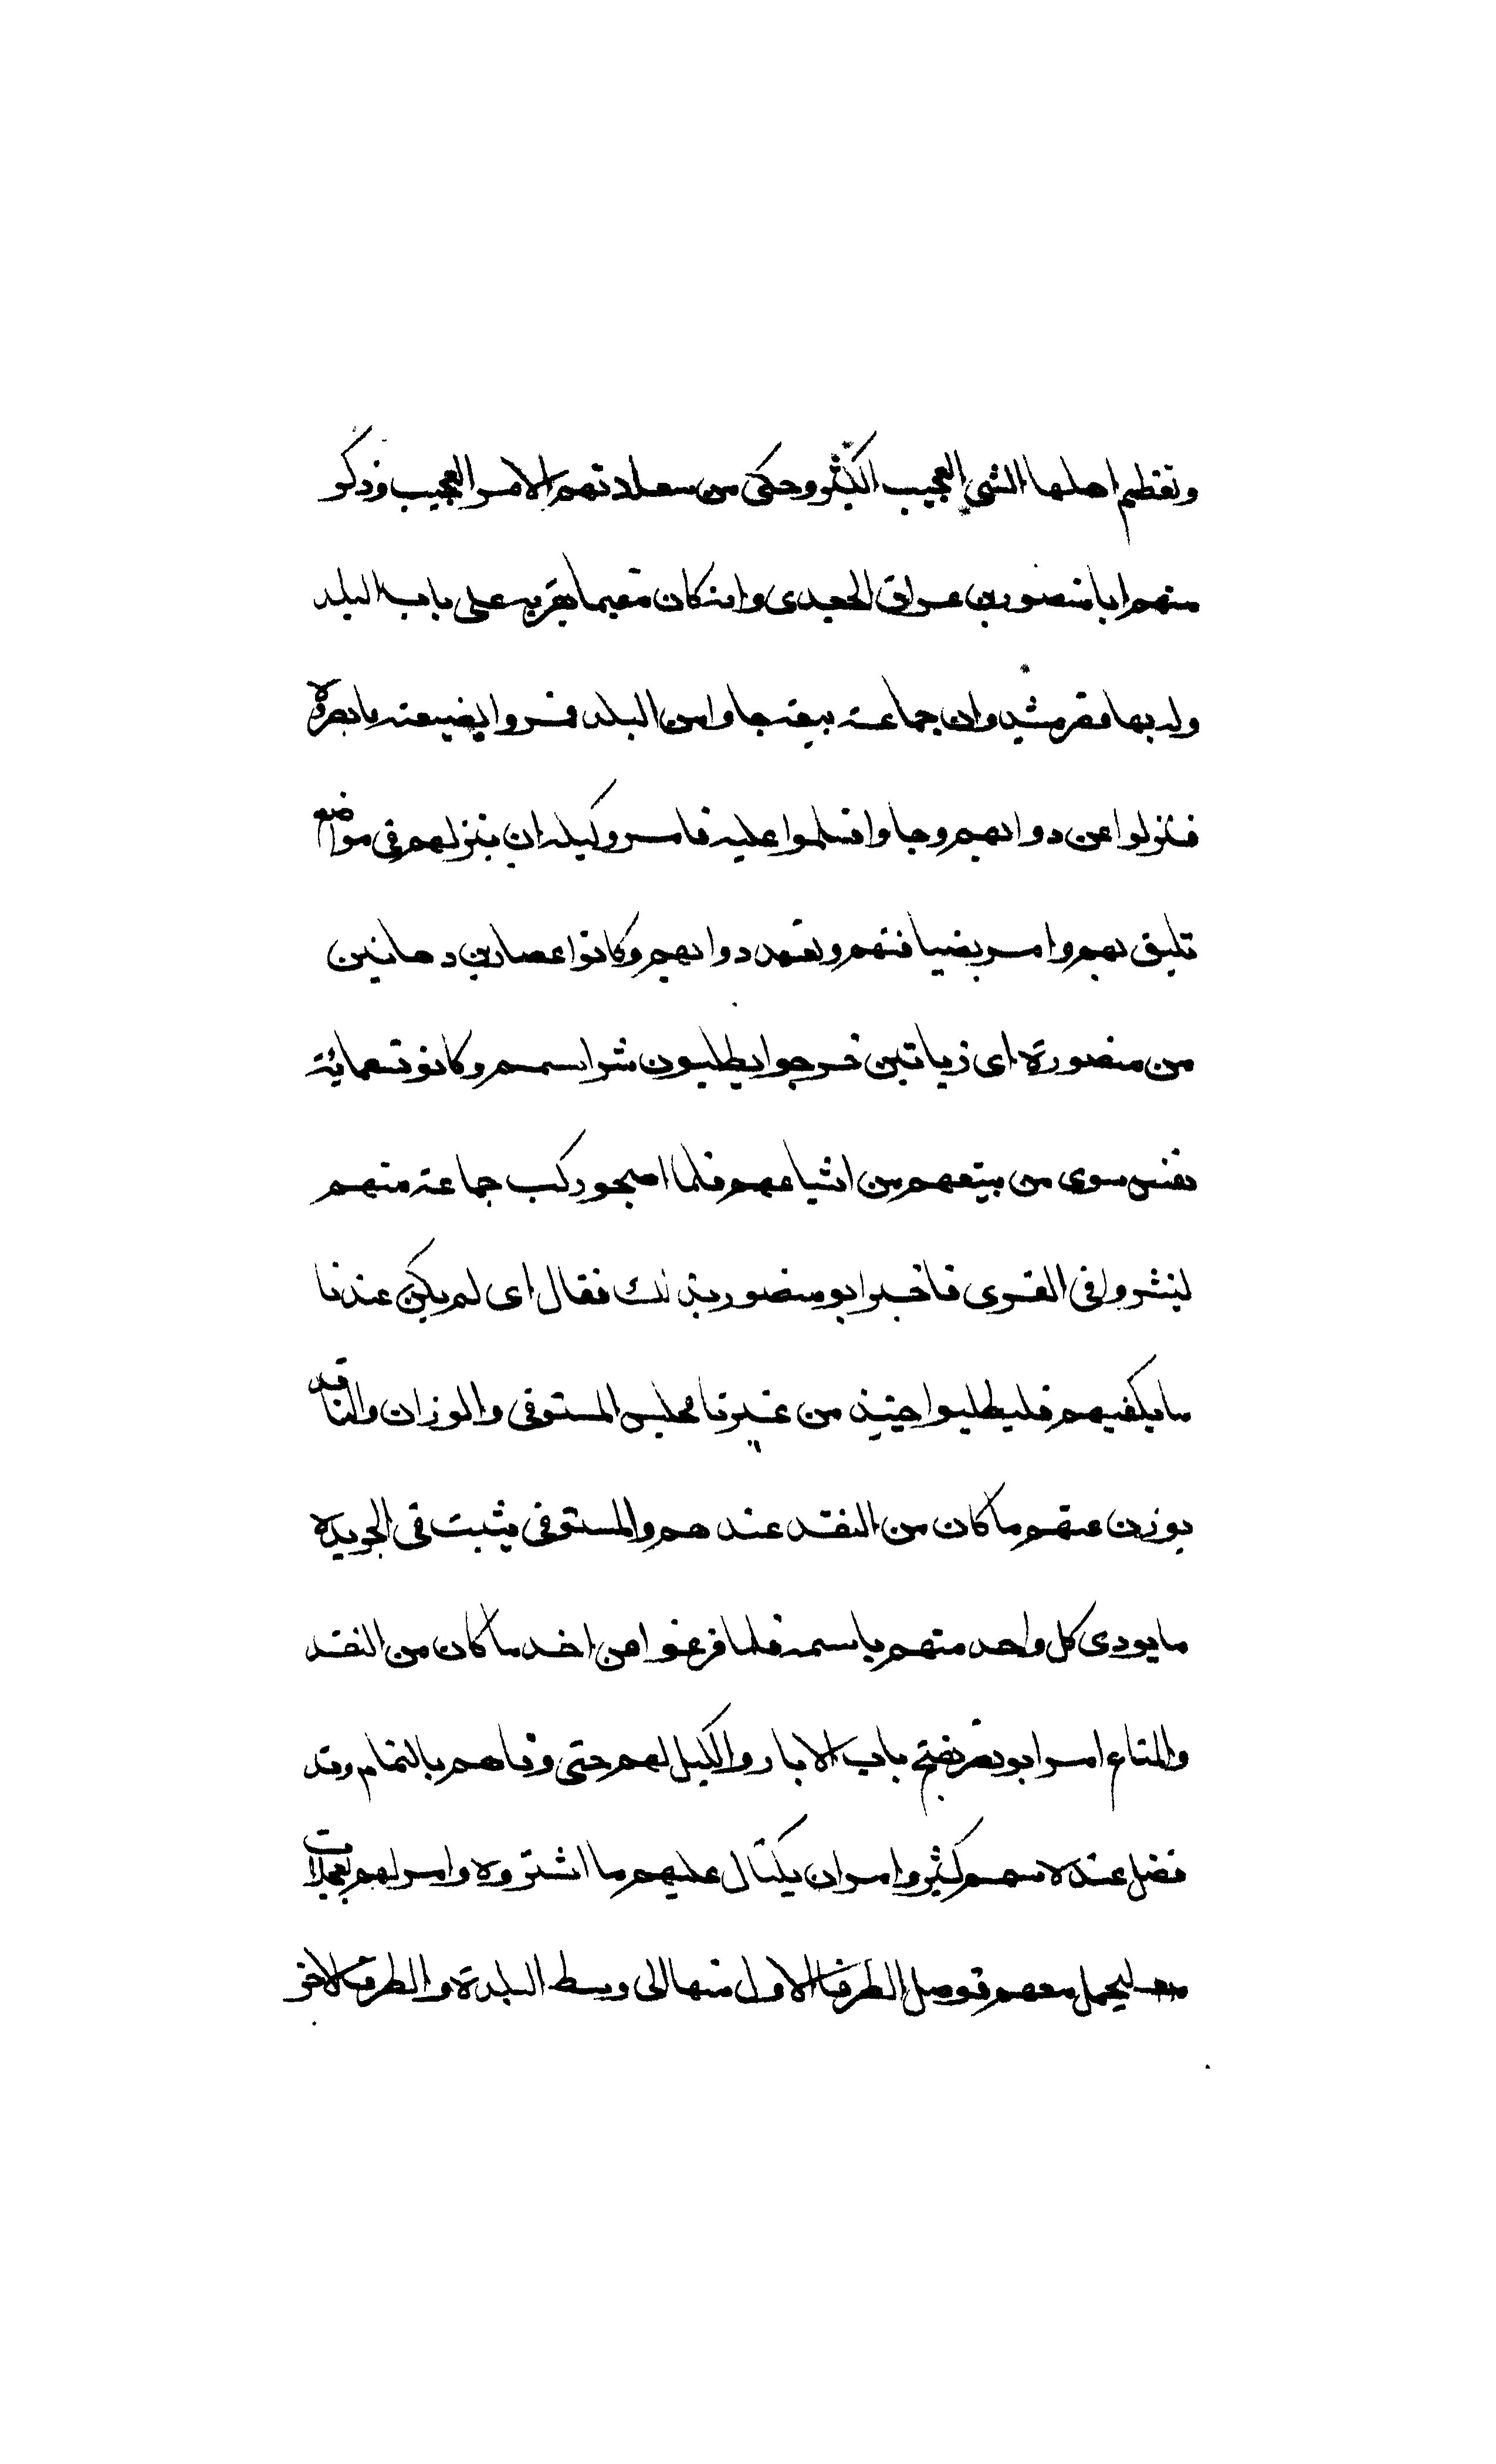 وتعظيم اهلها الشي العجيب الكثير وحكى من سعادتهم الامر العجيب وذكر
منهم ابا منصور بن عراق الجعدي وانه كان مقيما بقربه على باب البلد
وله بها قصر مشيد وان جماعة بيقه جاوا من البلد فمروا بضيعته بالبصرة
فنزلوا عن دوابهم وجاوا فسلموا عليه فامر وكيله ان ينزلهم في مواضع
تليق بهم وامر بضيافتهم وتعهد دوابهم وكانوا عصارين دهانين
من منصورة اى زياتين خرجوا يطلبون شرا سمسم وكانو تسعماية
نفس سوى من يتبعهم من اشياعهم فلما اصبحو ركب جماعة منهم
لينشروا فى القرى فاخبر ابو منصور بذلك فقال اى لم يكن عندنا
ما يكفيهم فليطلبوا حينئذ من غيرنا فجلس المستوفى والوزان والناقد
يوزن منهم ما كان من النقد عندهم والمستوفى يثبت فى الجريدة
ما يودى كل واحد منهم باسمه فلما فرغوا من اخد ما كان من النقد
والمتاع امر ابو نصر بفتح باب الابار والكيل لهم حتى وفاهم بالتمام وقد
فضل عنده سمسم كثير وامر ان يكتال عليهم ما اشتروه وامر لهم بعجلات
ليحمل معهم فوصل الطرف الاول منها الى وسط البلدة والطرف الاخر